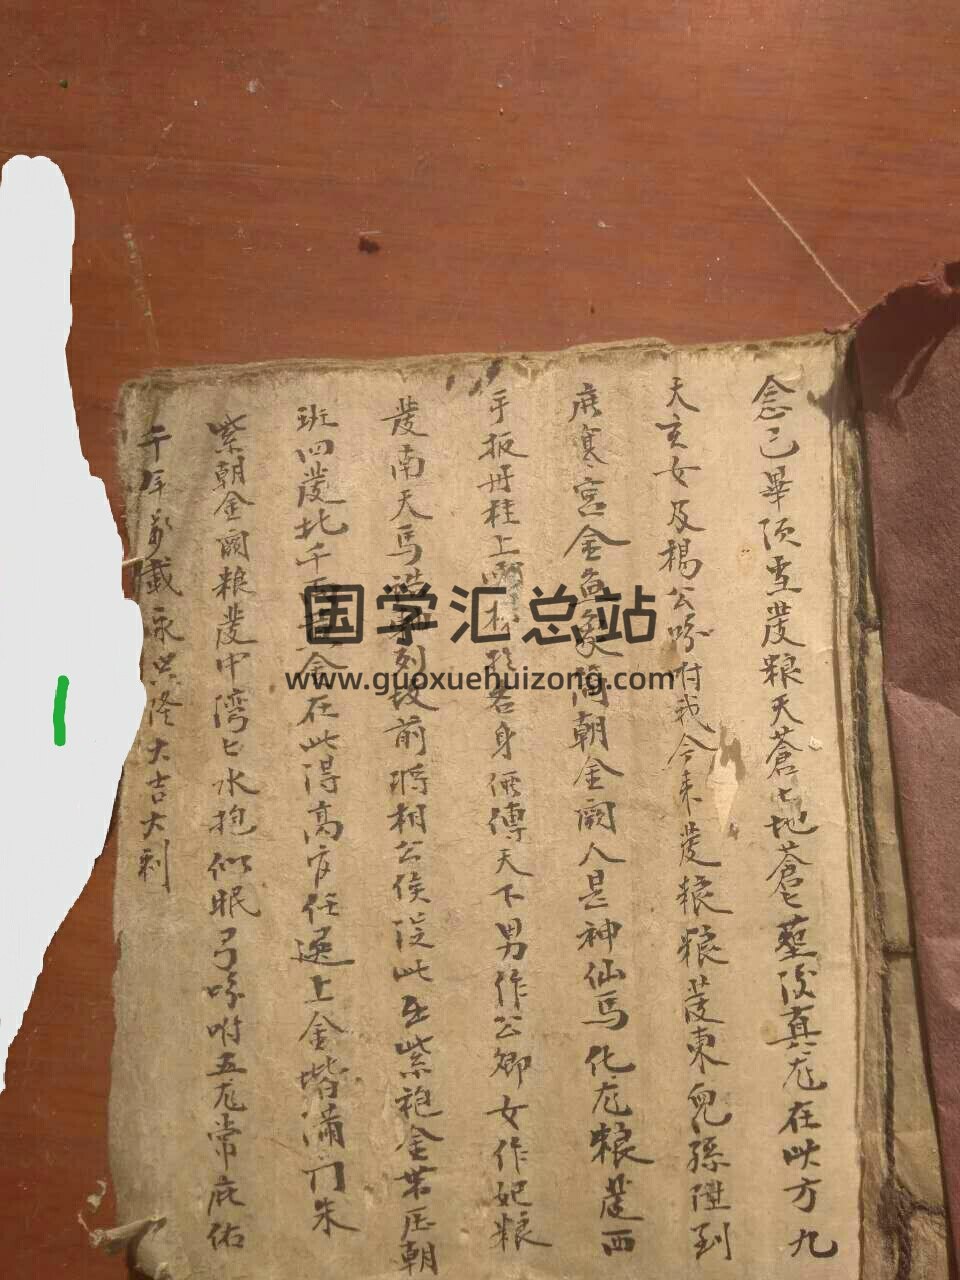 念已畢須至蔍粮天蒼〻地蒼〻塟後真龙在此方九
天玄女及楊公吩咐我今来蔍粮粮蔍東兒孫陞到
庶寒宮金魚象简朝金闕人是神仙馬化龙粮蔍西
手扳丹桂上 标 名身 傳天下男作公卿女作妃粮
蔍南天馬 列坟前將相公侯從此出紫袍金带压朝
班四蔍北千 金在此得高官任逸上金堦满门朱
紫朝金闕粮蔍中湾〻水抱似眠弓吩咐五龙常庇佑
千年萬載永兴隆大吉大利
国学汇总站
www.guoxuehuizong.com